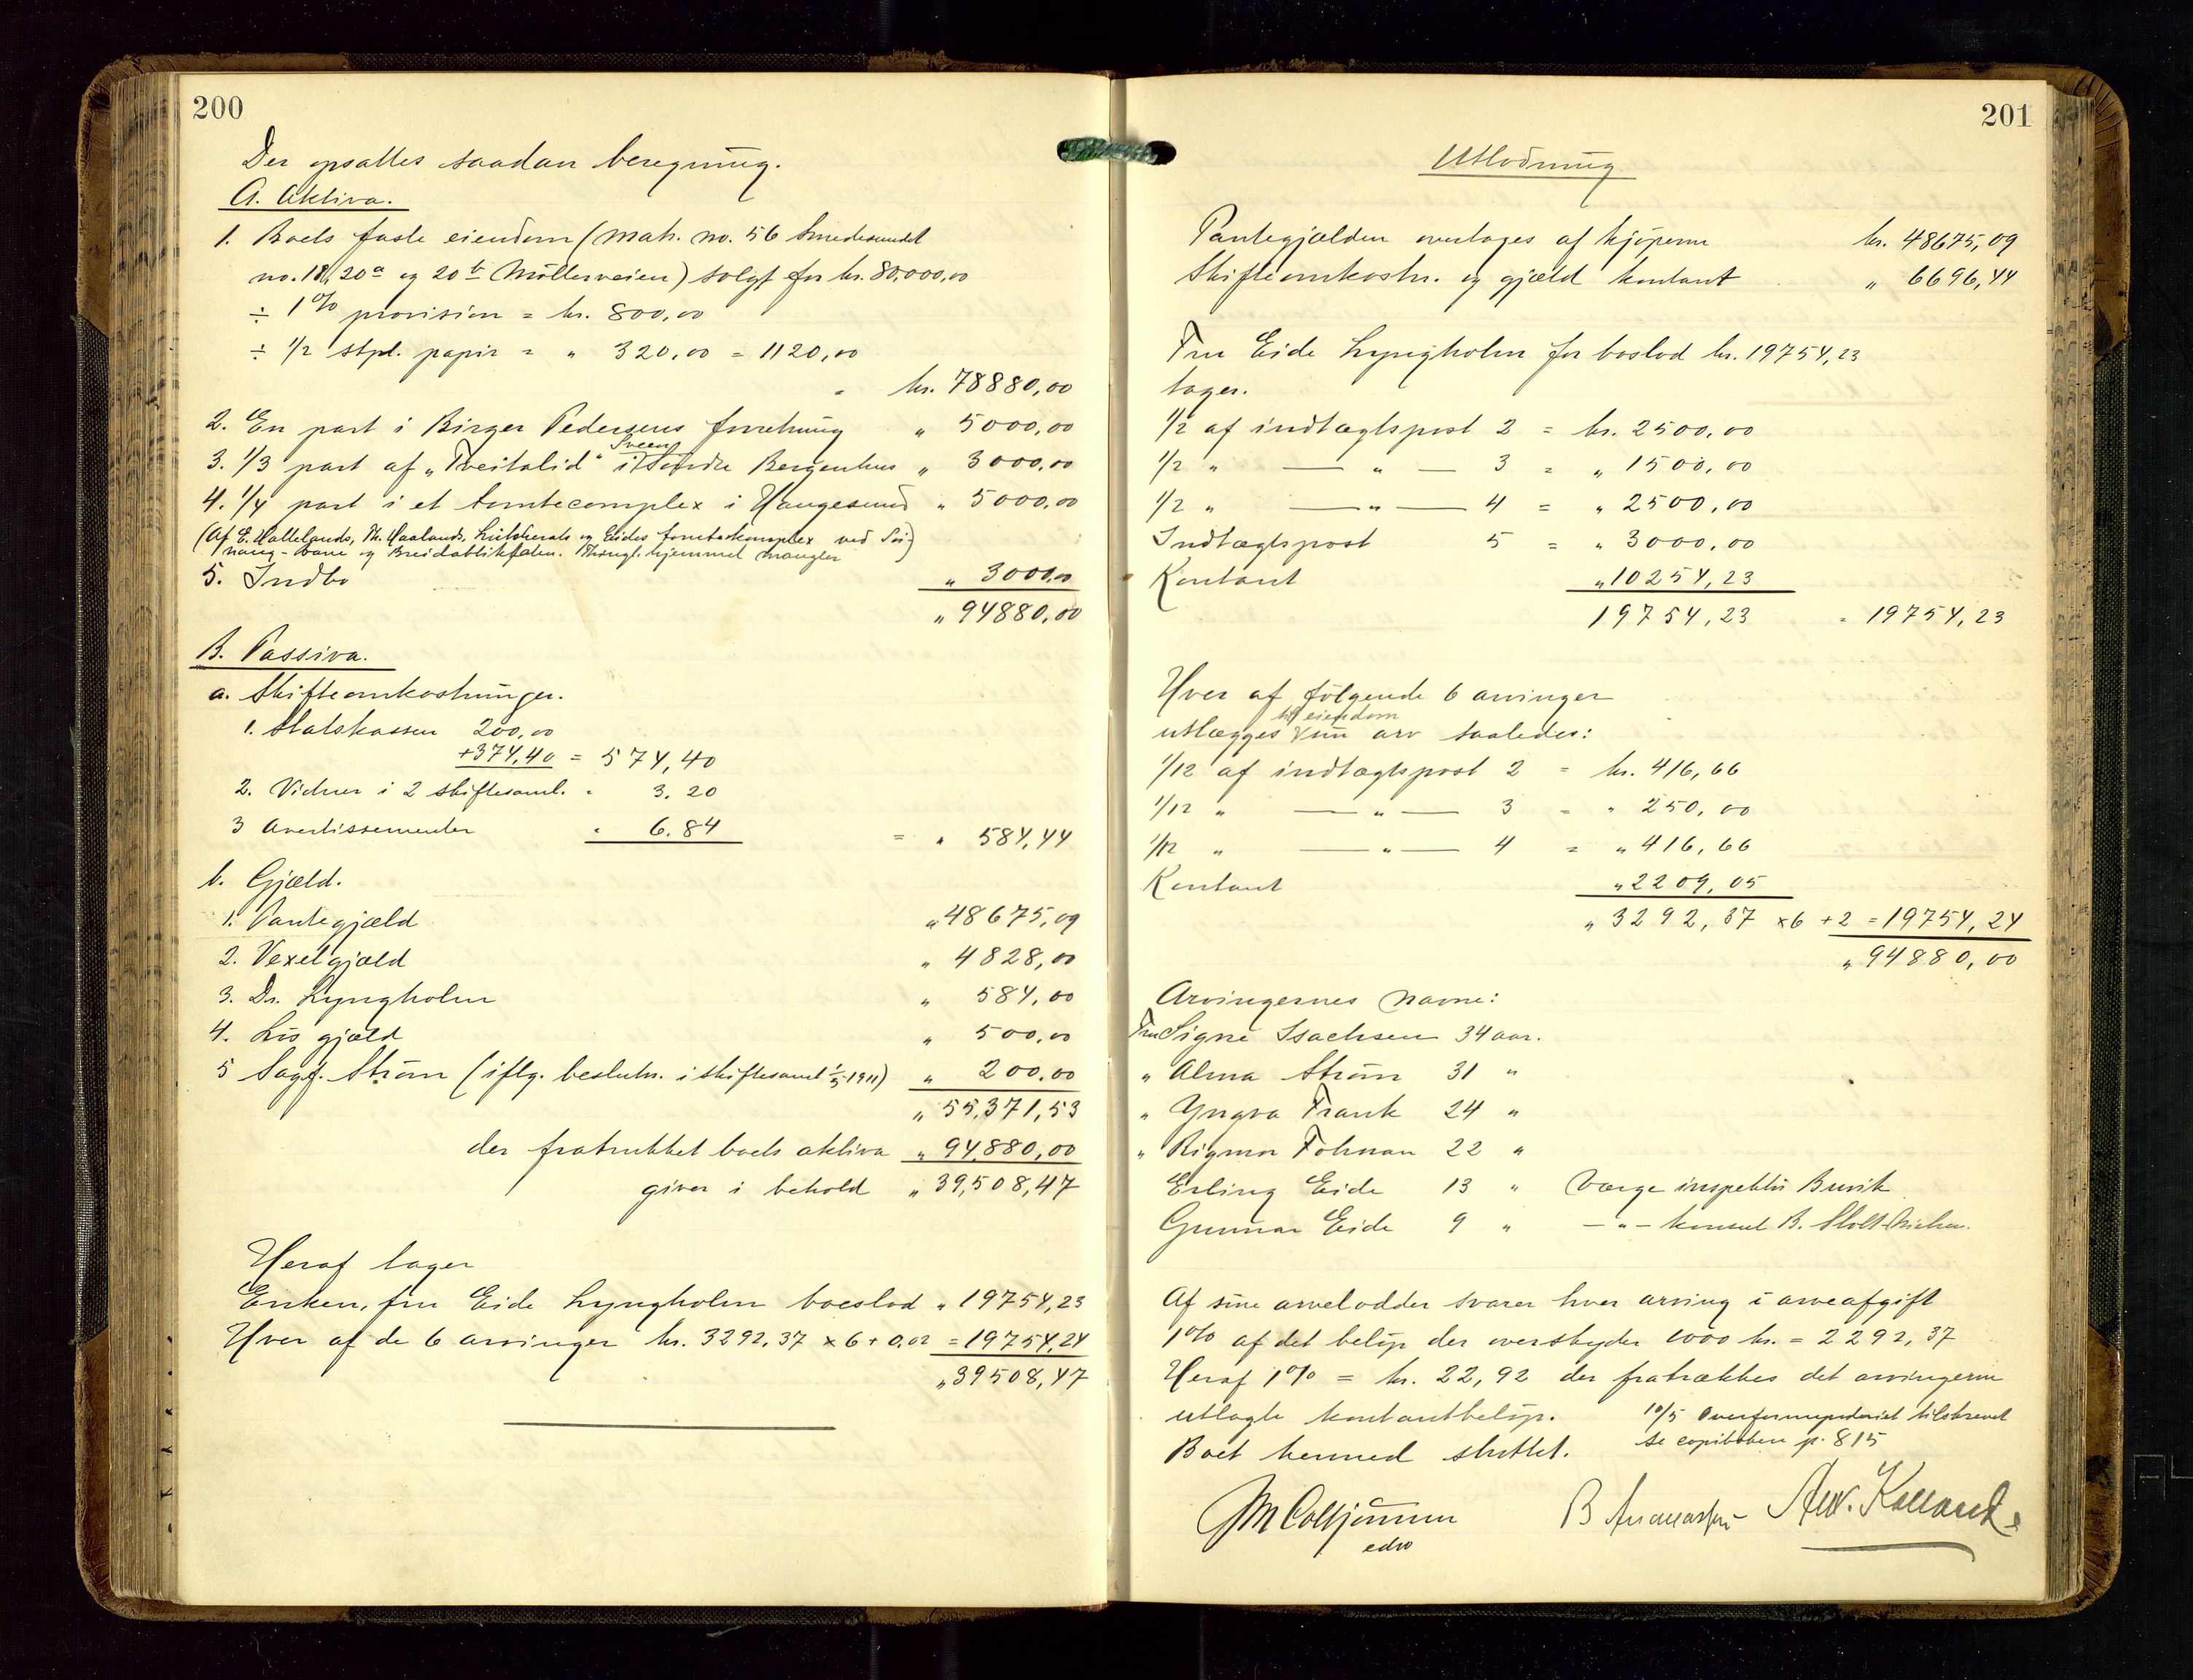 200
Der opsattes saadan beregning.
A. Aktiva.
1. Boets faste eiendom (Matr. no. 56 Smedesundet
no. 18, 20a og 20b Møllerveien) solgt for kr. 80,000,00
÷ 1% provision = kr. 800,00
÷ 1/2 stpl. papir = " 320,00 = 1120,00
= kr. 78880,00
2. En part i Birger Pedersens forretning " 5000,00
3. 1/3 part af "Tveitalid" i Sveen Søndre Bergenhus " 3000,00
4. 1/4 part i et tomtecomplex i Haugesund " 5000,00
(Af E. Hattelands, Th. Haalands, og Eides tomtekomplex ved
bane og Breidablikfalen. Thingl. hjemmel mangler
5. Indbo " 3000,00
" 94880,00
B. Passiva.
a. Skifteomkostninger.
1. Statskassen 200,00
+374,40 = 574,40
2. Vidner i 2 skiftesaml. " 3.20
3 Avertissementer " 6.84 = " 584,44
b. Gjæld.
1. Pantegjæld " 48675,09
2. Vexelgjæld " 4828,00
3. Dr. Lyngholm " 584,00
4. Løs gjæld " 500,00
5 Sagf. Strøm (iflg. beslutn. i skiftesaml 1/5 1911) " 200,00
" 55,371,53
der fratrukket boets aktiva " 94,880,00
giver i behold " 39,508,47
Heraf tager
Enken, fru Eide Lyngholm boeslod " 19754,23
Hver af de 6 arvinger kr. 3292,37 x 6 + 0,02 = 19754,24
" 39508,47
201
Utlodning
Pantegjælden overtages af kjøperne kr. 48675,09
Skifteomkostn. og gjæld kontant " 6696,44
Fru Eide Lyngholm for boslod kr. 19754,23
tager.
1/2 af indtægtspost 2 = kr. 2500,00
1/2 " — " — 3 = " 1500,00
1/2 " — " — 4 = " 2500,00
Indtægtspost 5 = " 3000,00
Kontant " 10254,23
19754,23 = 19754,23
Hver af følgende 6 arvinger
til eiendom
utlægges sin arv saaledes:
1/12 af indtægtspost 2 = kr. 416,66
1/12 " — " — 3 = " 250,00
1/12 " — " — 4 = " 416,66
Kontant " 2209,05
" 3292,37 x6 +2 = 19754,24
" 94880,00
Arvingernes navne:
Fru Signe Isachsen 34 aar.
" Alma Strøm 31 "
" Yngva Frank 24 "
" Rigmor Fohman 22 "
Erling Eide 13 " Værge inspektør Buvik
Gunnar Eide 9 " — " — konsul B. Stolt-Nielsen.
Af sine arvelodder svarer hver arving i arveafgift
1% af det beløp der overskyder 1000 kr. = 2292,37
Heraf 1% = kr. 22,92 der fratrækkes det arvingerne
utlagte kontantbeløp. 10/5 Overformynderiet tilskrevet
se copiboken p. 815
Boet hermed sluttet.
edw